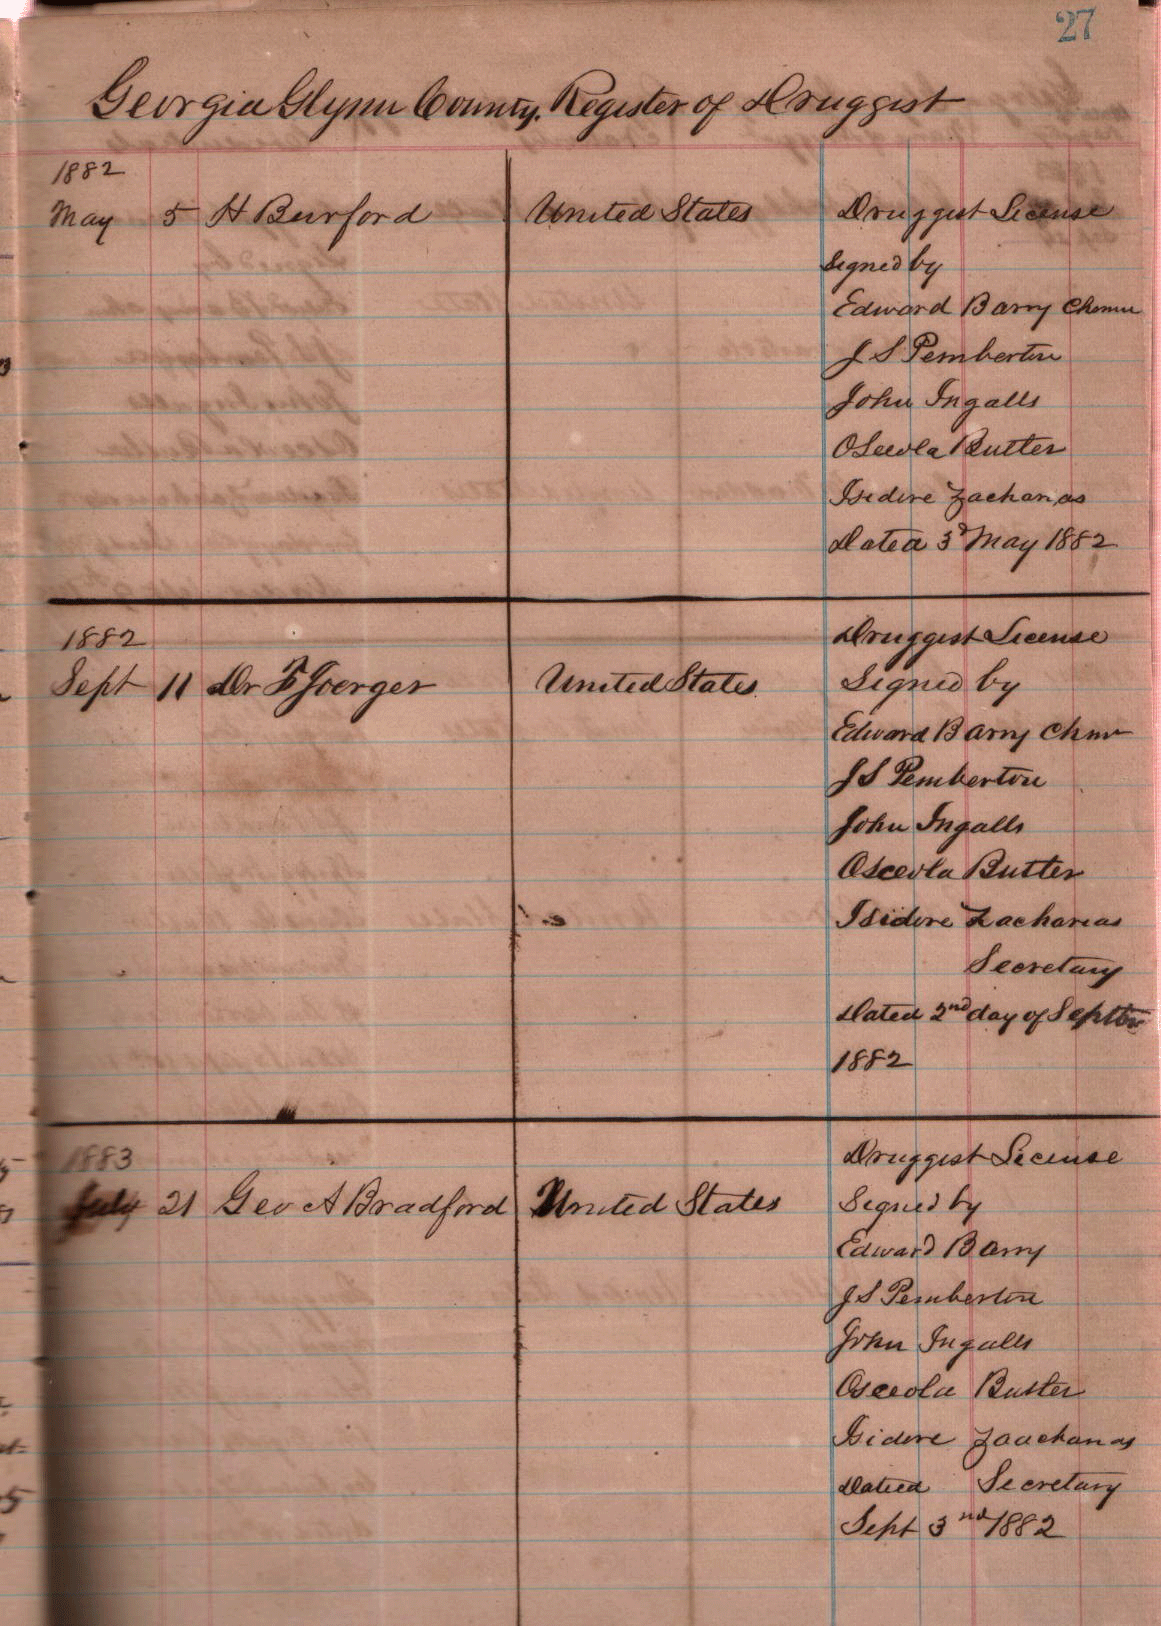 27
Georgia Glynn County. Register of Druggist
1882
May 5 H Burford United States Druggist License
Signed by
Edward Barry Chmn
J S Pemberton
John Ingalls
Osceola Butler
Isidore Zacharias
Dated 3d May 1882
1882 Druggist License
Sept 11 Dr F Joerger United States Signed by
Edward Barry Chmn
J S Pemberton
John Ingalls
Osceola Butler
Isidore Zacharias
Secretary
Dated 2nd day of Septbr
1882
1883 Druggist License
July 21 Geo A Bradford United States Signed by
Edward Barry
J S Pemberton
John Ingalls
Osceola Butler
Isidore Zaacharias
Dated Secretary
Sept 3nd 1882